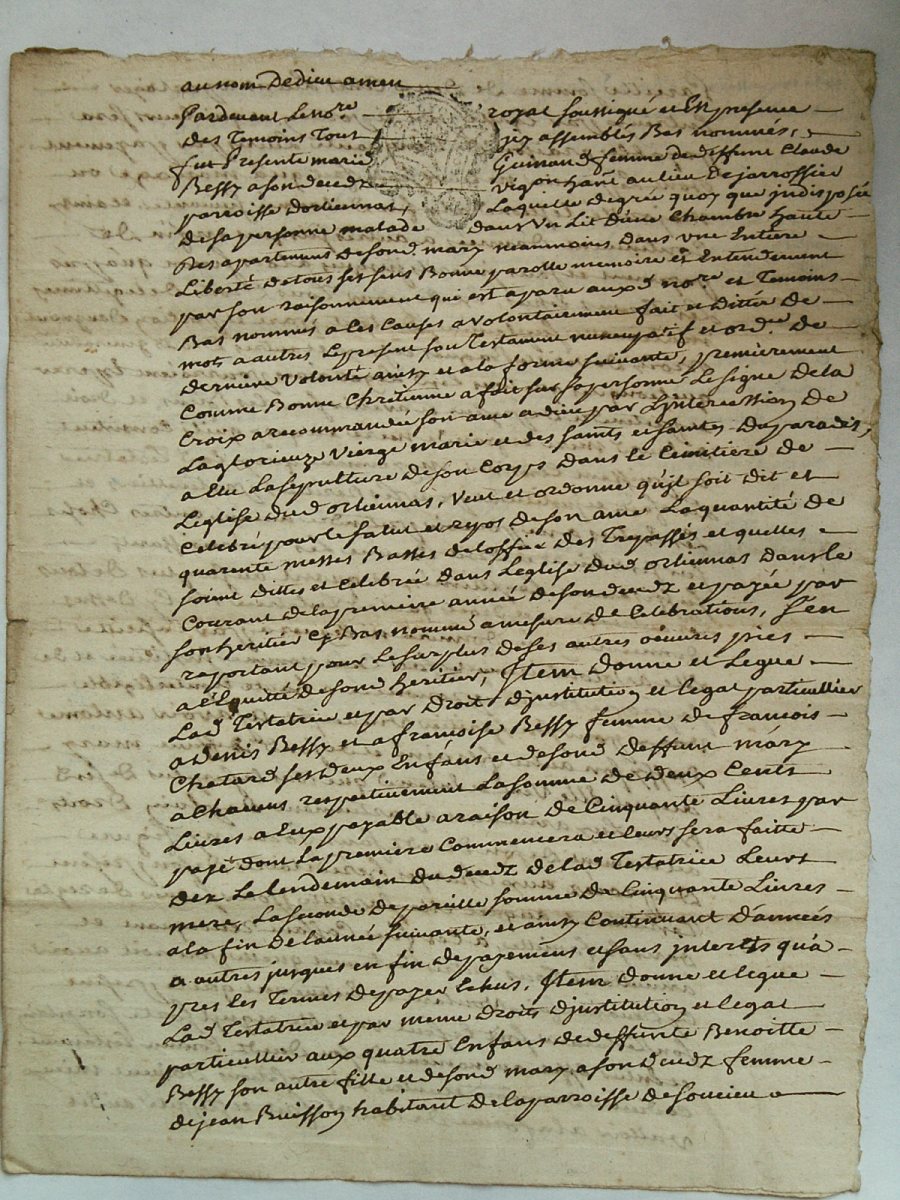 au nom De dieu amen
Pardevant Le no.re royal soussigné et En presence
des Temoins Tout jcy assemblés Bas nommés,
fut Presente marie Guinand femme de deffunt Claude
Bessy a son decedz vig.on hant au lieu De jarrossier
parroisse dorliennas, Laquelle de gré quoy que jndisposée
de sa personne malade dans Vn Lit D'une Chambre haute
Des apartemens de sond. mary neanmoins dans une Entiere
Liberté de tous ses sens Bonne parolle memoire et Entendement
par son raisonnement qui est aparu auxd no.re et Temoins
Bas nommés a les Causes a volontairement fait et Ditté de
mot a autres Le present son Testament nuncupatif et ord.ce de
derniere Volonté ainsy et a la forme suivante, premierement
Comme Bonne Chrétienne a fait sur sa personne Le signe de la
Croix a recommandée son ame a dieu par L'jntercession de
La glorieuze Vierge marie et des saints et saintes du paradis,
a Elu La sepulture de son Corps Dans le Cimitiere de
L'eglise dud orliennas, Veut et ordonne qu'jl soit dit et
Celebré pour le salut et repos de son ame La quantité de
quarente messes Basses de l'office des Trepassés et quelles
soient dittes et Celebrée dans L'eglise dud orliennas dans le
Courant de la premiere année de son decedz et payée par
son heritier Cy Bas nommé a mesure de Celebrations, s'en
raportant pour Le surplus de ses autres oeuvres pies
a l'Equitté de sond heritier, Jtem Donne et Legue
Lad Testatrice et par Droit D'jnstitution et legat particullier
a Denis Bessy et a francoise Bessy femme de francois
Chatard ses deux Enfans et de sond deffunt mary
a Chacuns respectivement La somme de deux Cents
Livres a Eux payable a raison de Cinquante Livres par
payé dont La premiere Commencera et leurs sera faitte
dez Le lendemain du decedz de lad Testatrice Leurs
mere, La seconde de pareille somme de Cinquante Livres
a la fin de l'année suivante, et ainsy Continuant d'années
a autres jusques en fin de payemens et sans jnterets qu'a
pres les Termes de payer Echus, Jtem donne et legue
Lad Testatrice et par même Droits D'jnstitution et legat
particullier aux quatre Enfans de deffunte Benoitte
Bessy son autre fille et de sond mary a son decedz femme
de jean Buisson habitant de la parroisse de soucieu